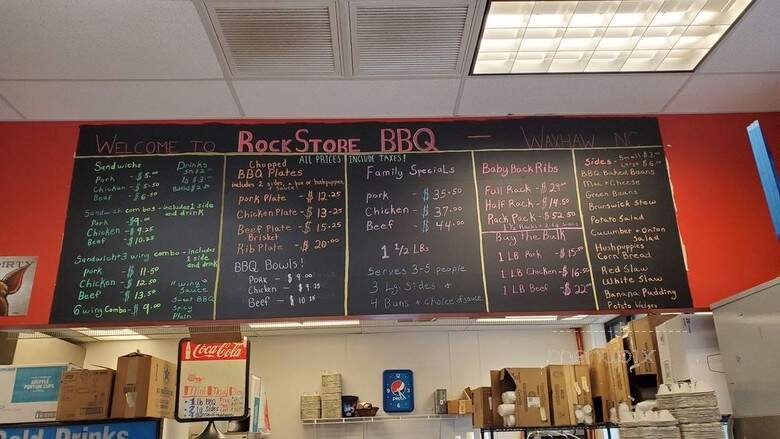 WELCOME TO ROCKSTORE BBQ - WAXHAW NC
ALL PRICES INCLUDE TAXES!
Sandwichs
Pork - $5.00
Chicken - $5.50
Beef - $6.50
Drinks
Sandwich combos - includes 1 side and drink
Pork - $9.00
Chicken - $9.25
Beef - $10.25
Sandwich + 3 wing combo - includes 1 side and drink
Pork - $11.50
Chicken - $12.50
Beef - $13.50
6 wing combo - $9.00
wing sauce
Sweet BBQ
Spicy
Plain
Chopped
BBQ Plates
includes 2 sides,
Pork Plate - $12.25
Chicken Plate - $13.25
Beef Plate - $15.25
Brisket
Rib Plate - $20.00
BBQ Bowls!
Pork - $9.00
Chicken - $9.25
Beef - $10.25
Family Specials
pork - $35.50
Chicken - $37.00
Beef - $44.00
1 1/2 LBs
Serves 3-5 people
3 Lg. Sides +
4 Buns + Choice of sauce
Baby Back Ribs
Full Rack - $29.00
Half Rack - $14.50
Rack Pack - $52.50
Buy the Bulk
1 LB Pork - $15.50
1 LB Chicken - $16.50
1 LB Beef - $22.00
Sides - Small $3.00
Large $6.00
BBQ Baked Beans
Mac + Cheese
Green Beans
Brunswick Stew
Potato Salad
Cucumber + Onion Salad
Hushpuppies
Corn Bread
Red Slaw
White Slaw
Banana Pudding
Potato Wedges
DIRTY
Coca-Cola
1 lb BBQ
pepsi
Cold Drinks
menupix